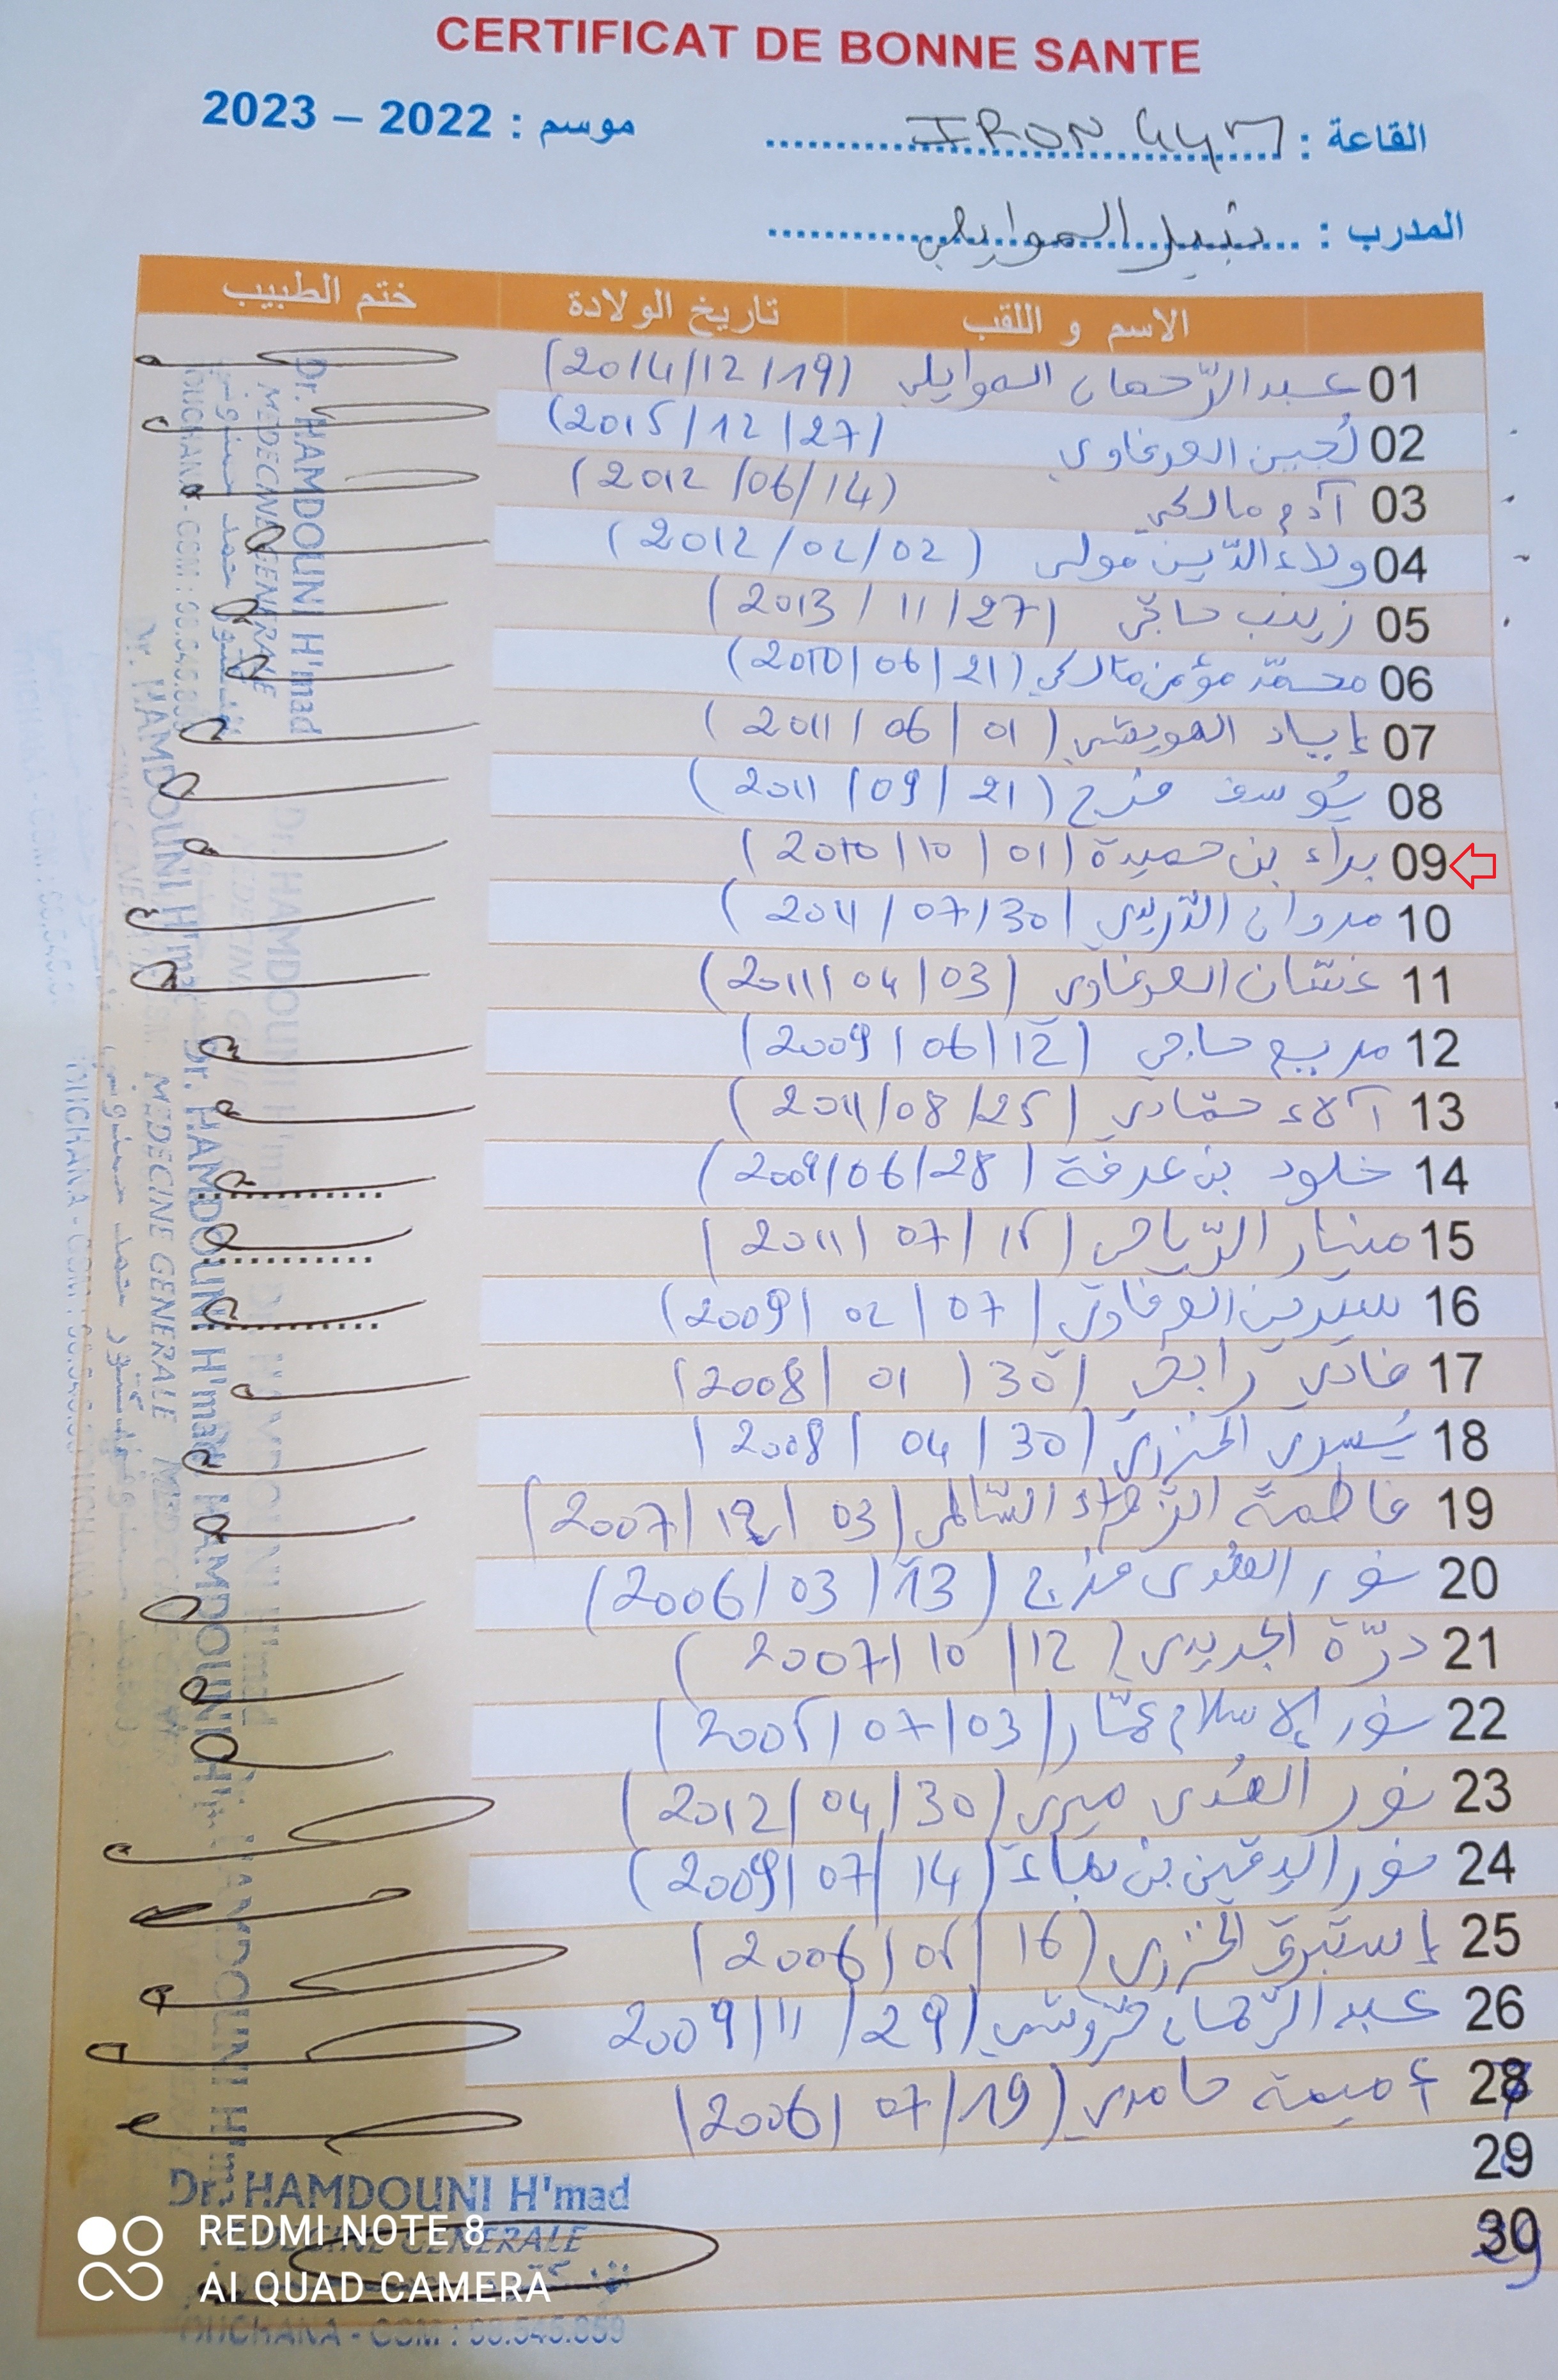 CERTIFICAT DE BONNE SANTE
القاعة : IRON GYM موسم : 2022 – 2023
المدرب : نبيل الموايلي
الاسم و اللقب تاريخ الولادة ختم الطبيب
01 عبد الرّحمان الموايلي (2014/12/19)
02 لُجين العرفاوي (2015/12/27)
03 آدم مالكي (2012/06/14)
04 ولاء الدّين مولى (2012/02/02)
05 زينب حاجي (2013/11/27)
06 محمّد مؤمن مالكي (2010/06/21)
07 إياد العويشي (2011/06/01)
08 يُوسف فرج (2011/09/21)
09 براء بن حميدة (2010/10/01)
10 مروان الدّريدي (2011/07/30)
11 غسّان العرفاوي (2011/04/03)
12 مريم حاجي (2009/06/12)
13 آلاء حمّادي (2011/08/25)
14 خلود بن عرفة (2009/06/28)
15 منار الرّياحي (2011/07/15)
16 سيرين العرفاوي (2009/02/07)
17 فادي رابحي (2008/01/30)
18 يُسرى الخزري (2008/04/30)
19 فاطمة الزّهراء السّالمي (2007/12/03)
20 نور الهُدى فرج (2006/03/13)
21 درّة الجديدي (2007/10/12)
22 نور الإسلام عمّار (2005/07/03)
23 نور الهُدى ميري (2012/04/30)
24 نور اليقين بن (2009/07/14)
25 إستبرق الخزري (2006/05/16)
26 عبد الرّحمان (2009/11/29
28 أميمة حامدي (2006/07/19)
29
30
Dr. HAMDOUNI H'mad
MEDECINE GENERALE
BOUCHANA - GSM : 98.545.859
REDMI NOTE 8
AI QUAD CAMERA